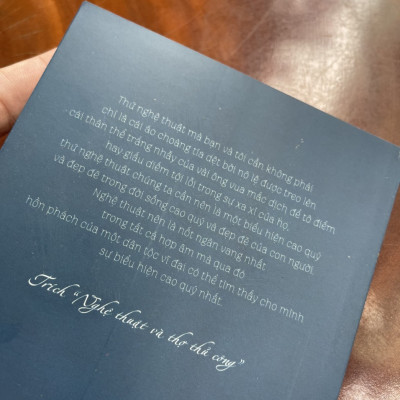 Thứ nghệ thuật mà bạn và tôi cần không phải
chỉ là cái áo choàng tía dệt bởi nô lệ được treo lên
cái thân thể trắng nhầy của vài ông vua mắc dịch để tô điểm
hay giấu diếm tội lỗi trong sự xa xỉ của họ,
thứ nghệ thuật chúng ta cần nên là một biểu hiện cao quý
và đẹp đẽ trong đời sống cao quý và đẹp đẽ của con người.
Nghệ thuật nên là nốt ngân vang nhất
trong tất cả hợp âm mà qua đó
hồn phách của một dân tộc vĩ đại có thể tìm thấy cho mình
sự biểu hiện cao quý nhất.
Trích "Nghệ thuật và thợ thủ công"